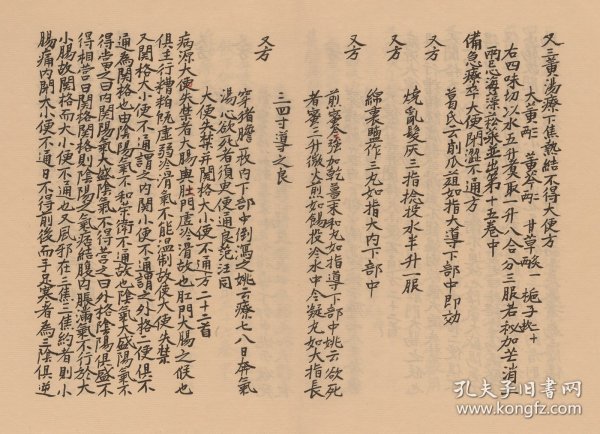 又三黄湯療下焦熱結不得大便方
大黄三兩 黄芩二兩 甘草一兩炙 梔子二七十
右四味切以水五升煮取一升八合分三服若秘加芒消二
兩忌海藻菘菜並出第十五卷中
備急療卒大便閉澀不通方
葛氏云削瓜菹如指大導下部中即効
又方
燒亂髮灰三指捻投水半升一服
又方
綿裹鹽作三丸如指大内下部中
又方
煎蜜令強加乾薑末和丸如指導下部中姚云欲死
者蜜三升微火煎如餳投冷水中令凝丸如大指長
三四寸導之良
又方
穿猪膽一枚内下部中倒瀉之姚云療七八日奔氣
湯心欲死者須臾便通良范汪同
大便失禁并關格大小便不通方二十二首
病源大便失禁者大腸與肛門虛冷滑故也肛門大腸之候也
俱主行糟粕既虛弱冷滑氣不能温制故使大便失禁
又關格大小便不通謂之内關小便不通謂之外格二便俱不
通為關格也由陰陽氣不和榮衛不通故也陰氣大盛陽氣不
得營之曰内關陽氣大盛陰氣不得營之曰外格陰陽俱盛不
得相營曰關格關格則陰陽之氣痞結腹内脹滿氣不行於大
小腸故關格而大小便不通也又風邪在三焦三焦約者則小
腸痛内閉大小便不通日不得前後而手足寒者為三陰俱逆
孔夫子旧書网
www.kongfz.com